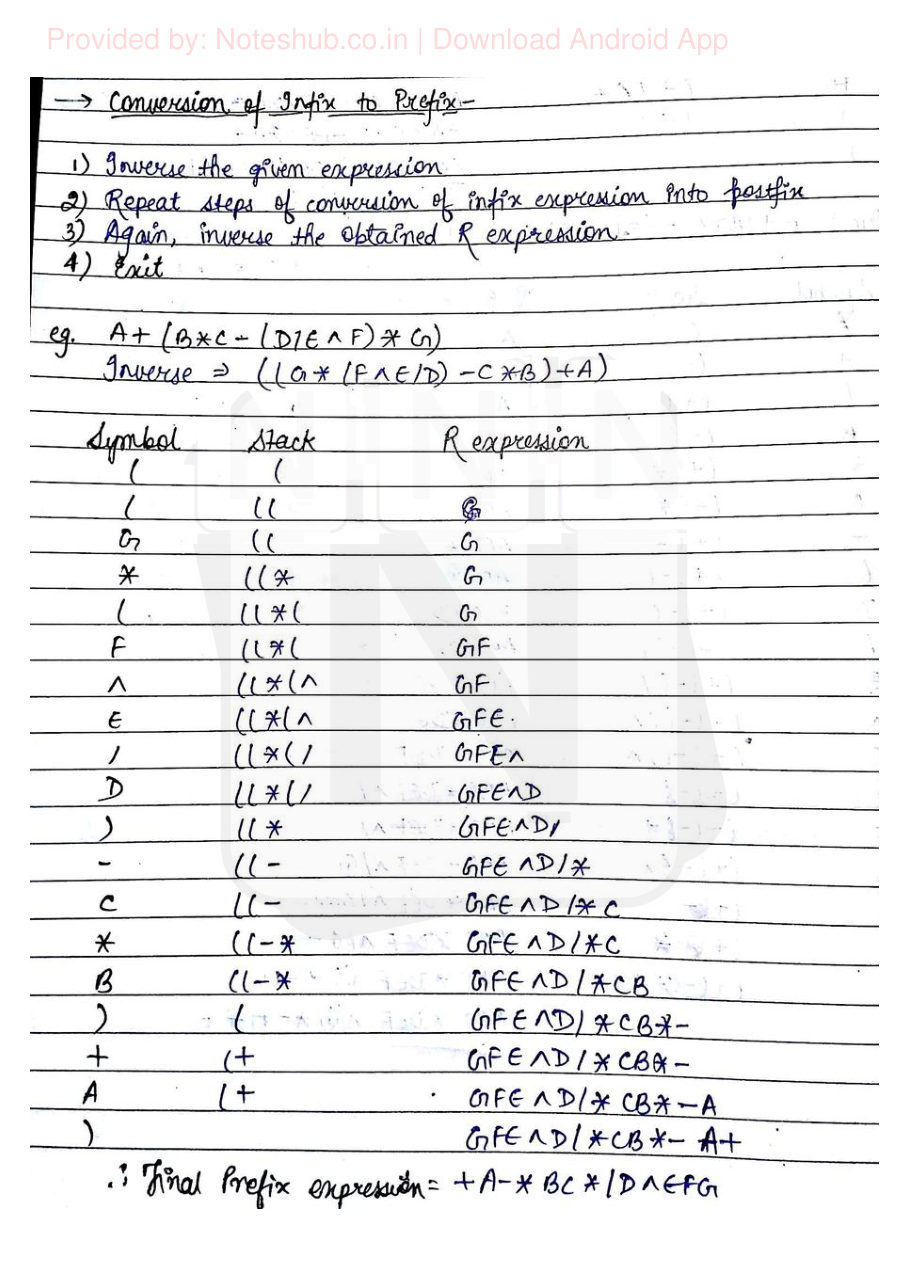 Provided by: Noteshub.co.in | Download Android App
→ Conversion of Infix to Prefix -
1) Inverse the given expression
2) Repeat steps of conversion of infix expression into postfix
3) Again, inverse the obtained R expression.
4) Exit
eg. A + (B*C - (D/E ^ F) * G)
Inverse ⇒ ((G * (F ^ E/D) - C *B) + A)
Symbol Stack R expression
( (
( (( G
G (( G
* ((* G
( ((*( G
F ((*( GF
^ ((*(^ GF
E ((*(^ GFE
/ ((*(/ GFE^
D ((*(/ GFE^D
) ((* GFE^D/
- ((- GFE^D/*
C ((- GFE^D/*C
* ((-* GFE^D/*C
B ((-* GFE^D/*CB
) ( GFE^D/*CB*-
+ (+ GFE^D/*CB*-
A (+ GFE^D/*CB*-A
) GFE^D/*CB*-A+
∴ Final Prefix expression = +A-*BC*/D^EFG